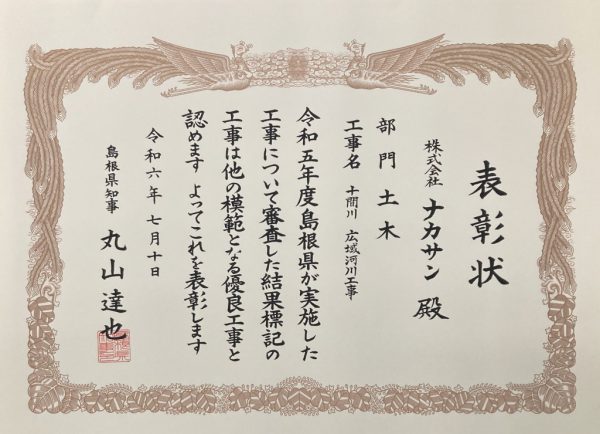 表彰状
株式会社 ナカサン 殿
部門 土木
工事名 十間川 広域河川工事
令和五年度島根県が実施した
工事について審査した結果標記の
工事は他の模範となる優良工事と
認めます よってこれを表彰します
令和六年七月十日
島根県知事 丸山達也